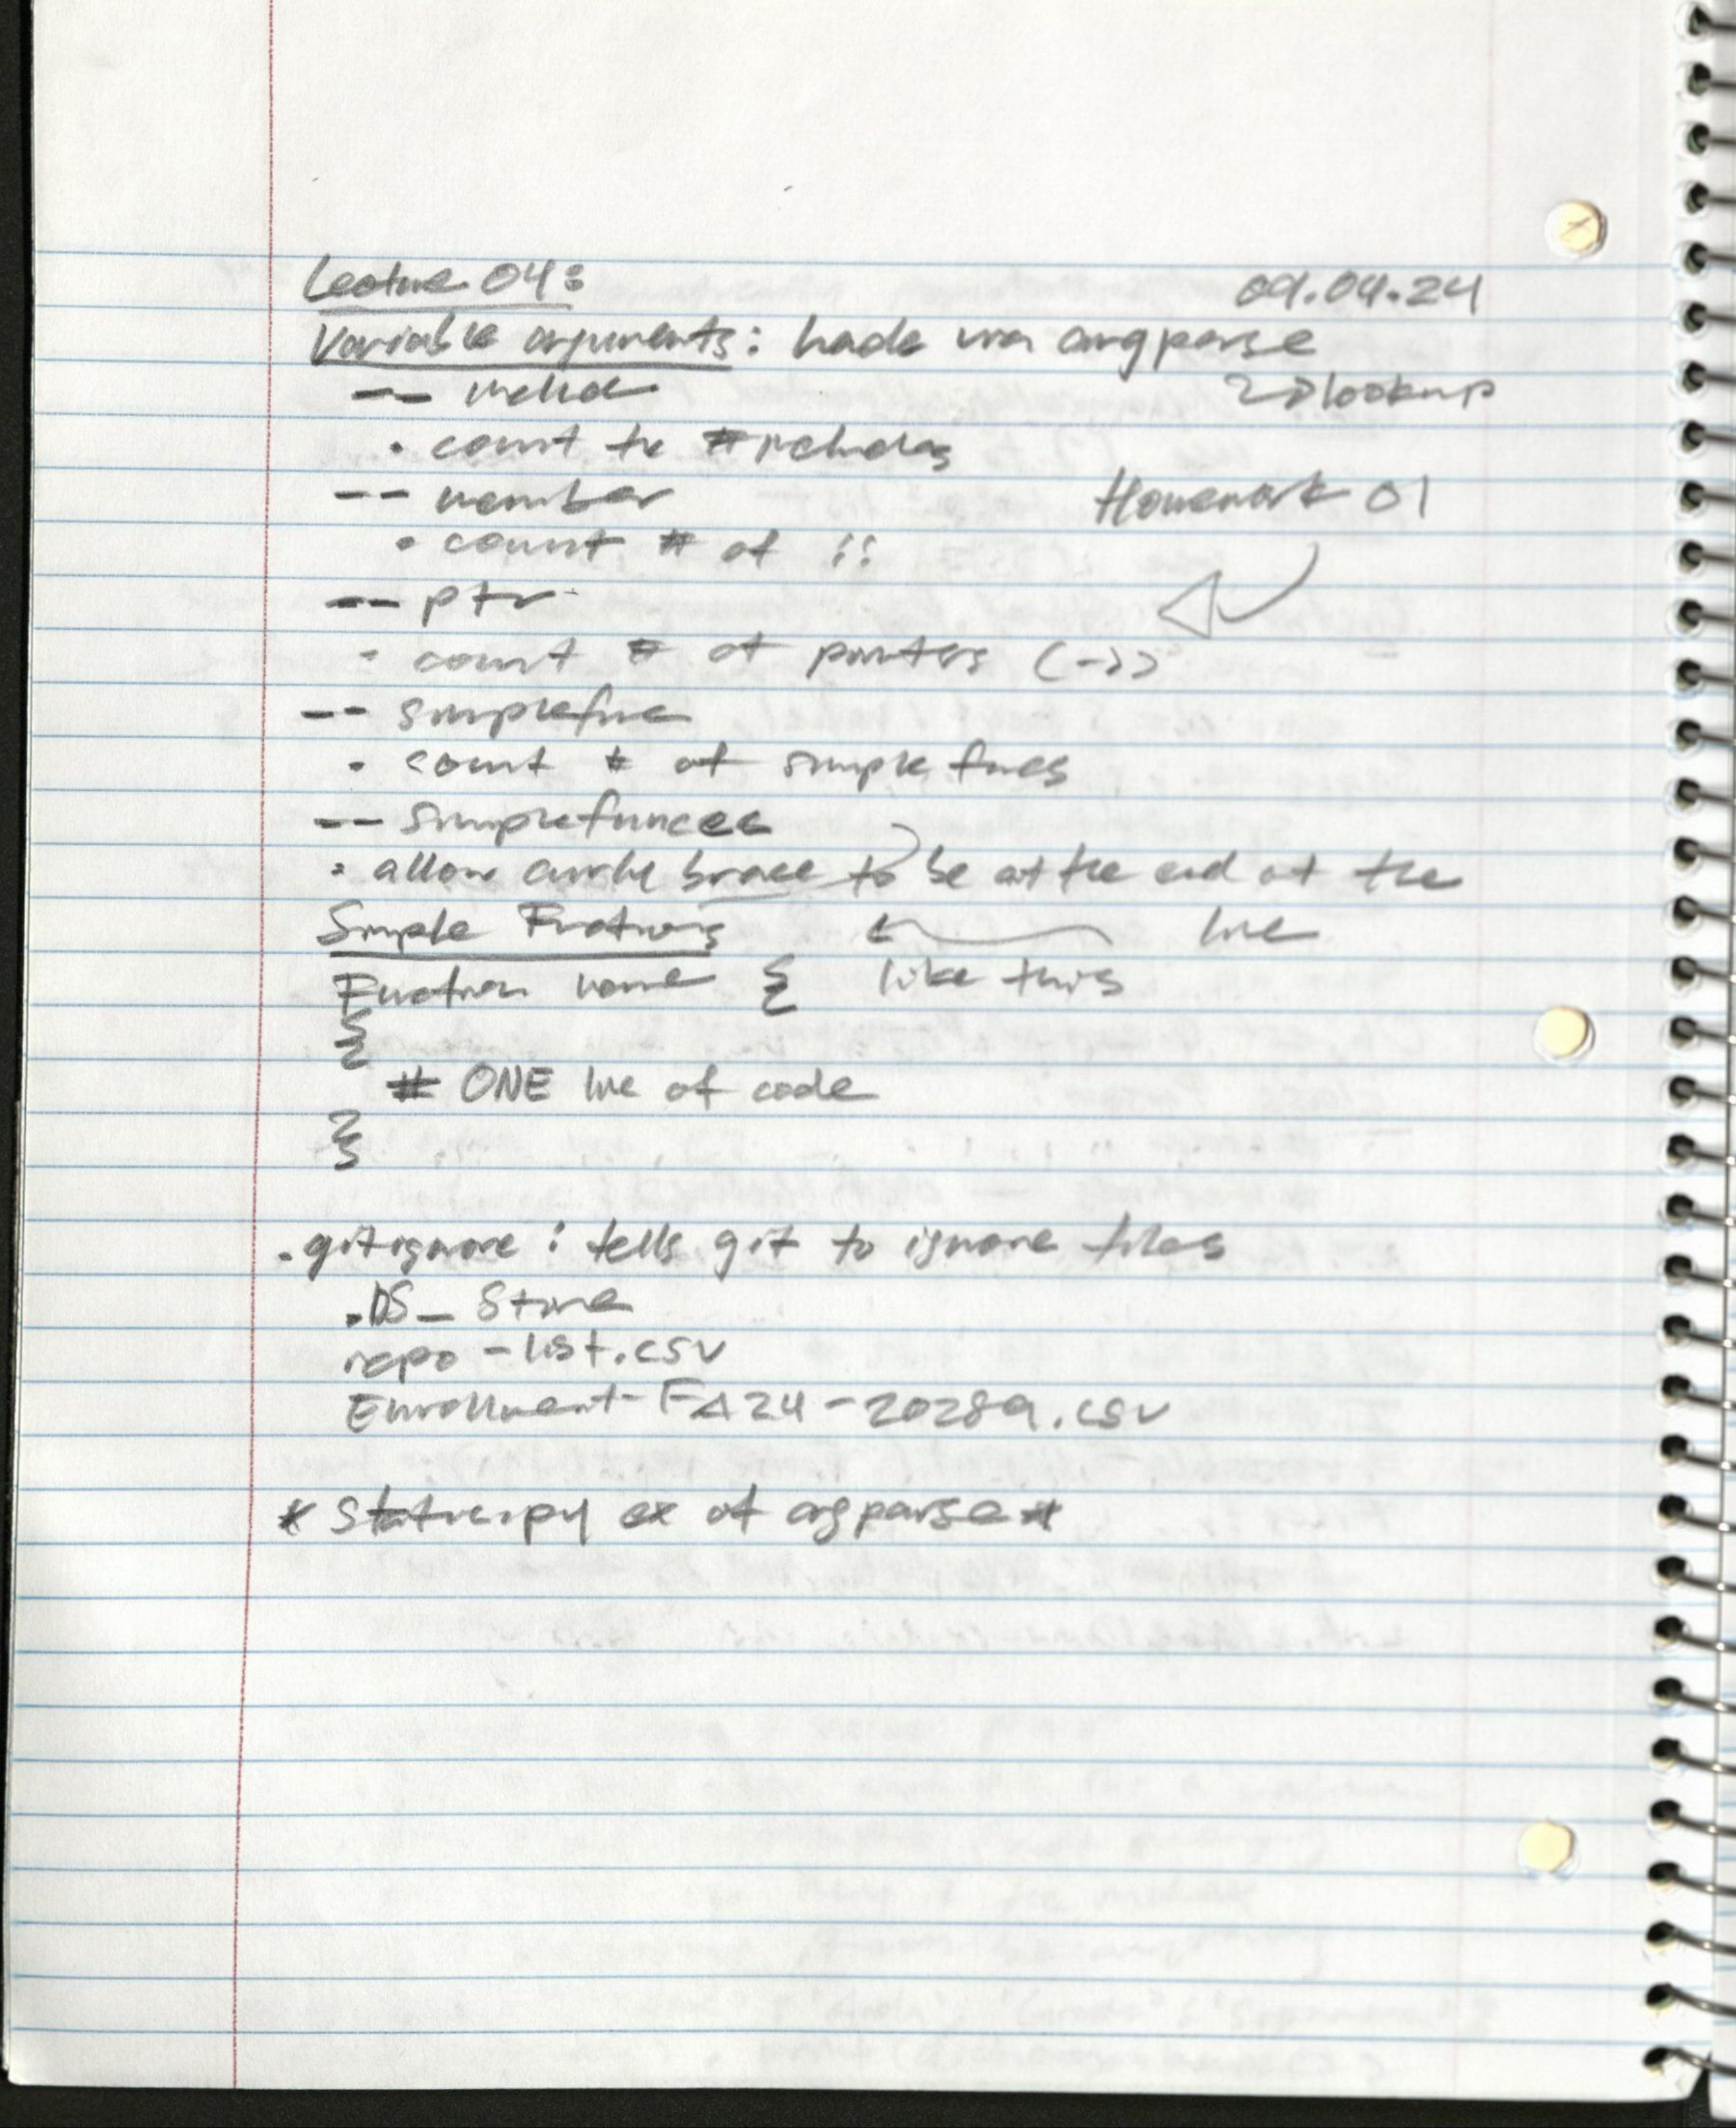 Lecture 04: 09.04.24
Variable arguments: handle via argparse
↳ lookup
-- include
• count the # includes
-- member
Homework 01
• count # of ::
-- ptr
• count # of pointers (->)
-- simplefunc
• count # of simple funcs
-- simplefuncec
• allow curly brace to be at the end of the
line
Simple Functions
Function name { like this
{
# ONE line of code
}
.gitignore : tells git to ignore files
.DS_Store
repo-list.csv
Enrollment-FA24-20289.csv
* ex of argparse *